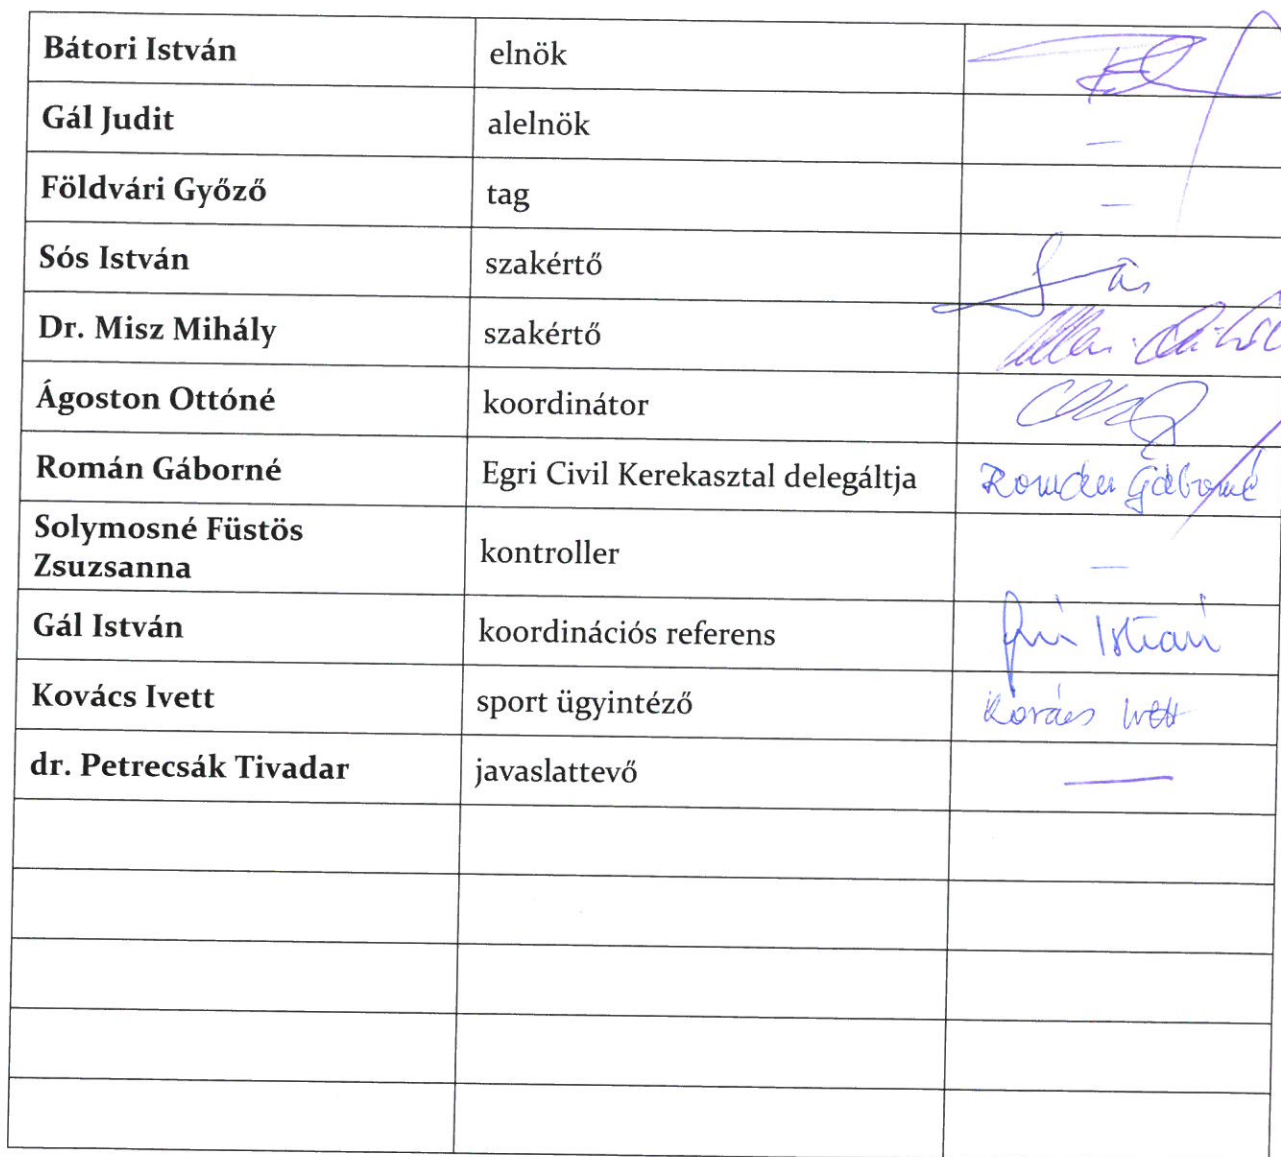 Bátori István elnök
Gál Judit alelnök –
Földvári Győző tag –
Sós István szakértő Sós
Dr. Misz Mihály szakértő
Ágoston Ottóné koordinátor
Román Gáborné Egri Civil Kerekasztal delegáltja Román Gáborné
Solymosné Füstös
Zsuzsanna kontroller –
Gál István koordinációs referens Gál István
Kovács Ivett sport ügyintéző Kovács Ivett
dr. Petrecsák Tivadar javaslattevő —